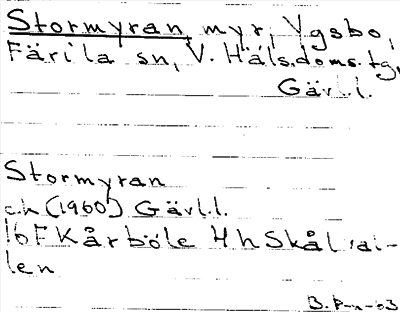 Stormyran, myr, Ygsbo,
Färila sn, V. Häls.doms.tg,
Gävl.l.
Stormyran
ch (1960) Gävl.l.
16F Kårböle 4h Skål
len